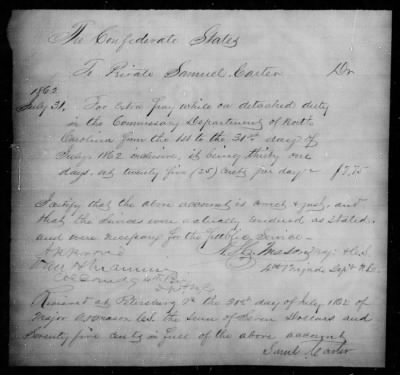 The Confederate States
To Private Samuel Carter Dr
1862
July 31. For Extra Pay while on detached duty
in the Commissary Department of North
Carolina from the 1st to the 31st day of
July 1862 inclusive, it being thirty one
days. at twenty five (25) cents per day - $7.75
I certify that the above account is correct & just, and
that the services were actually rendered as stated.
and were necessary for the public service -
Mason Maj & C.S.
Brigade Dept N.C.
Comdg 4th Brig
Received at Petersburg Va the 31st day of July 1862 of
Major Mason C.S. the sum of Seven Dollars and
Seventy five cents in full of the above account
Saml Carter